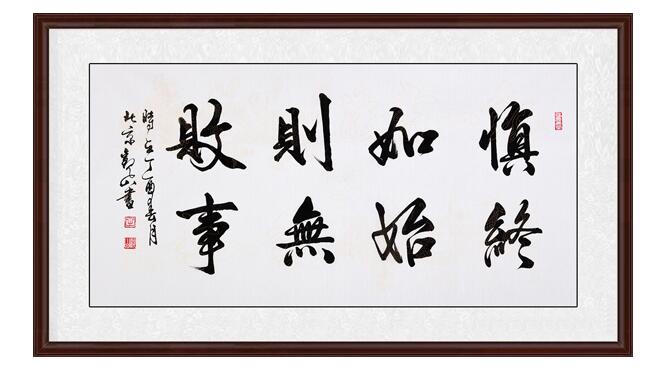 慎終
如始
則無
敗事
時在丁酉春月
北京
書